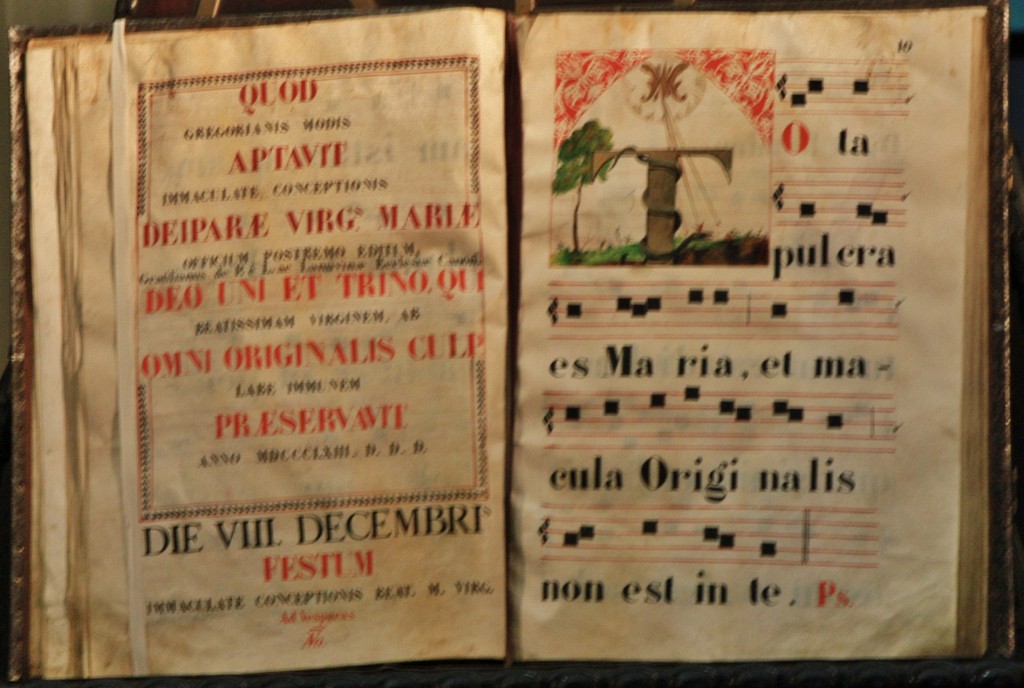 QUOD
GREGORIANIS MODIS
APTAVIT
IMMACULATE CONCEPTIONIS
DEIPARÆ VIRGS MARIÆ
OFFICIUM POSTREMO EDITUM,
DEO UNI ET TRINO, QUI
BEATISSIMAM VIRGINEM, AB
OMNI ORIGINALIS CULP
LABE IMMUNEM
PRÆSERVAVIT
ANNO MDCCCLXIII. D. D. D.
DIE VIII. DECEMBRIS
FESTUM
IMMACULATE CONCEPTIONIS BEAT. M. VIRG.
Ad Vesperas
10
T
O ta
pulcra
es Ma ria, et ma-
cula Origi nalis
non est in te. Ps.